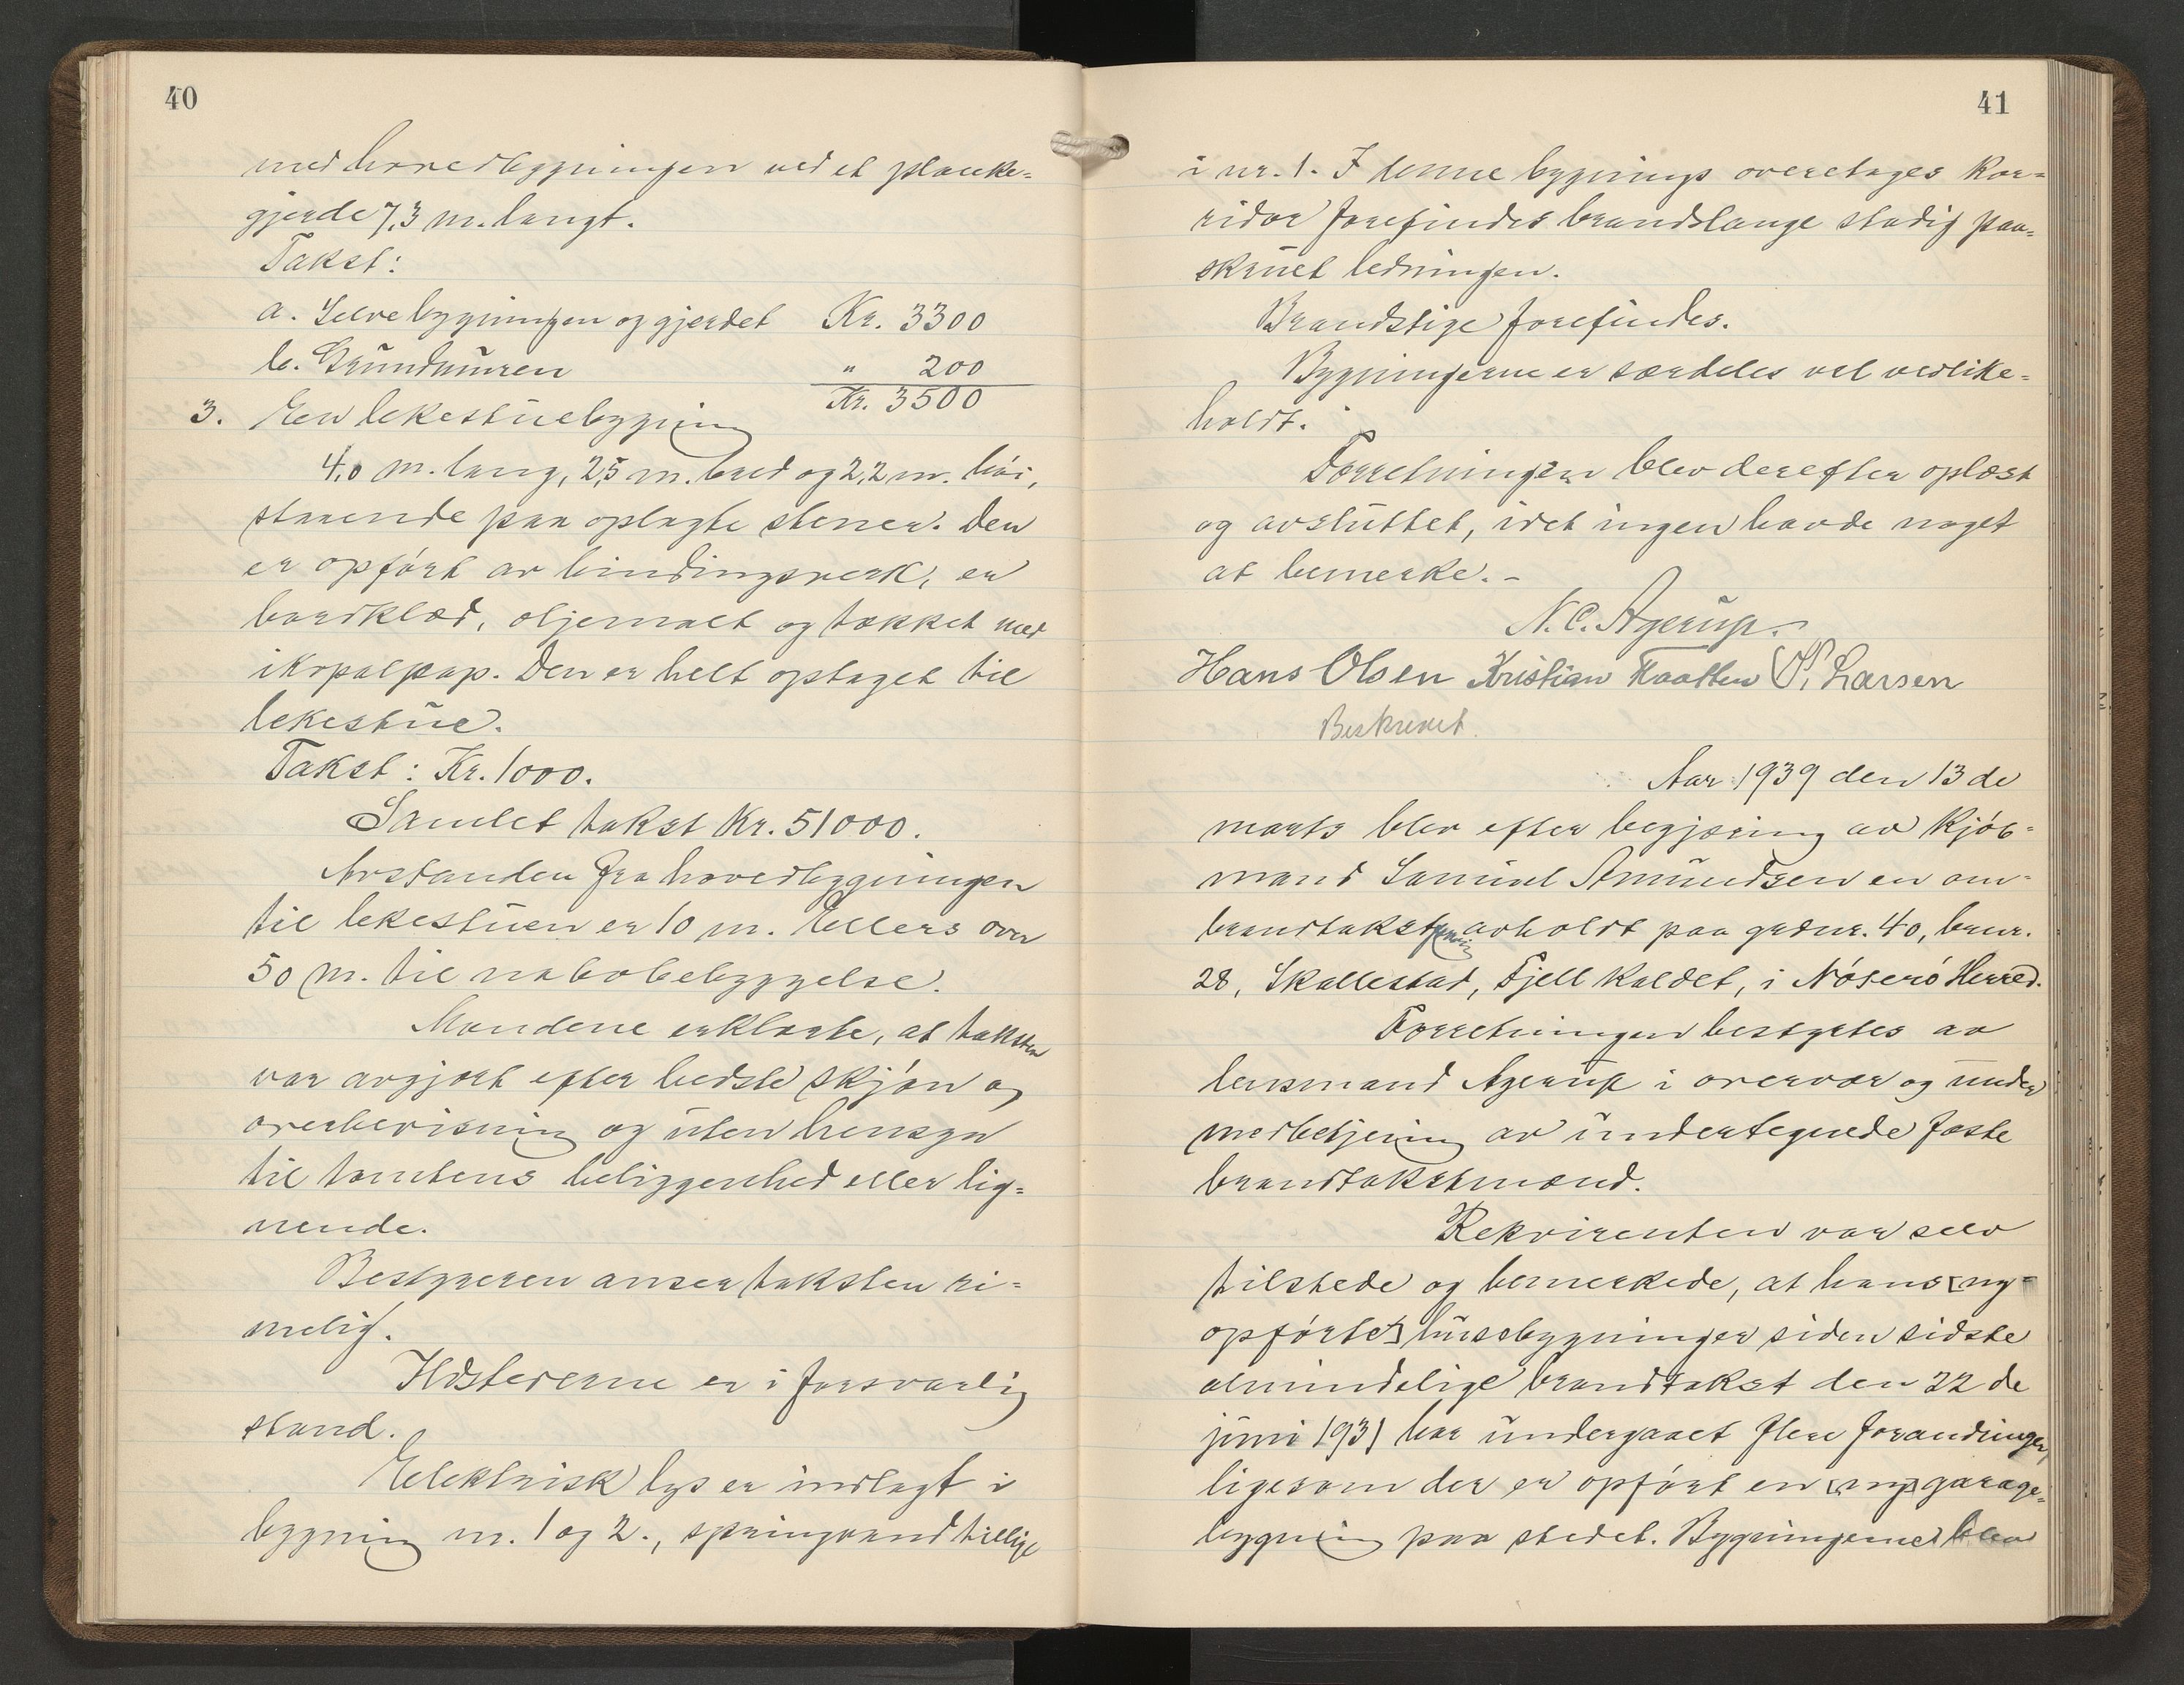 40
med hovedbygningen ved et planke-
gjerde 7,3 m. langt.
Takst:
a. Selve bygningen og gjerdet Kr. 3300
b. Grundmuren " 200
Kr. 3500
3. Een lekestuebygning
4,0 m. lang, 2,5 m. bred og 2,2 m. høi,
staaende paa oplagte stener. Den
er opført av bindingsverk, er
bordklæd, oljemalt og tækket med
ikopalpap. Den er helt optaget til
lekestue.
Takst: Kr. 1000.
Samlet takst Kr. 51000.
Avstanden fra hovedbygningen
til lekestuen er 10 m. Ellers over
50 m. til nabobebyggelse.
Mændene erklærte, at taksten
var avgjort efter bedste skjøn og
overbevisning og uten hensyn
til tomtens beliggenhed eller lig-
nende.
Bestyreren anser taksten ri-
melig.
Ildstederne er i forsvarlig
stand.
Elektrisk lys er indlagt i
bygning nr. 1 og 2., springvand tillige
41
i nr. 1. I denne bygnings overetages kor-
ridor forefindes brandslange stadig paa-
skruet ledningen.
Brandstige forefindes.
Bygningerne er særdeles vel vedlike-
holdt.
Forretningen blev derefter oplæst
og avsluttet, idet ingen havde noget
at bemerke. -
N. C. Agerup.
Hans Olsen Kristian Haatten O. Larsen
Beskrevet.
Aar 1939 den 13 de
marts blev efter begjæring av kjøb-
mand Samuel Amundsen en om-
brandtakst avholdt paa gardnr. 40, brnr.
28, Skallestad, Fjell kaldet, i Nøterø Herred.
Forretningen bestyrtes av
lensmand Agerup i overvær og under
medbetjening av undertegnede faste
brandtakstmænd.
Rekvirenten var selv
tilstede og bemerkede, at hans [ny-
opførte] husebygninger siden sidste
almindelige brandtakst den 22 de
juni 1931 har undergaaet flere forandringer,
ligesom der er opført en [ny] garage-
bygning paa stedet. Bygningerne blev